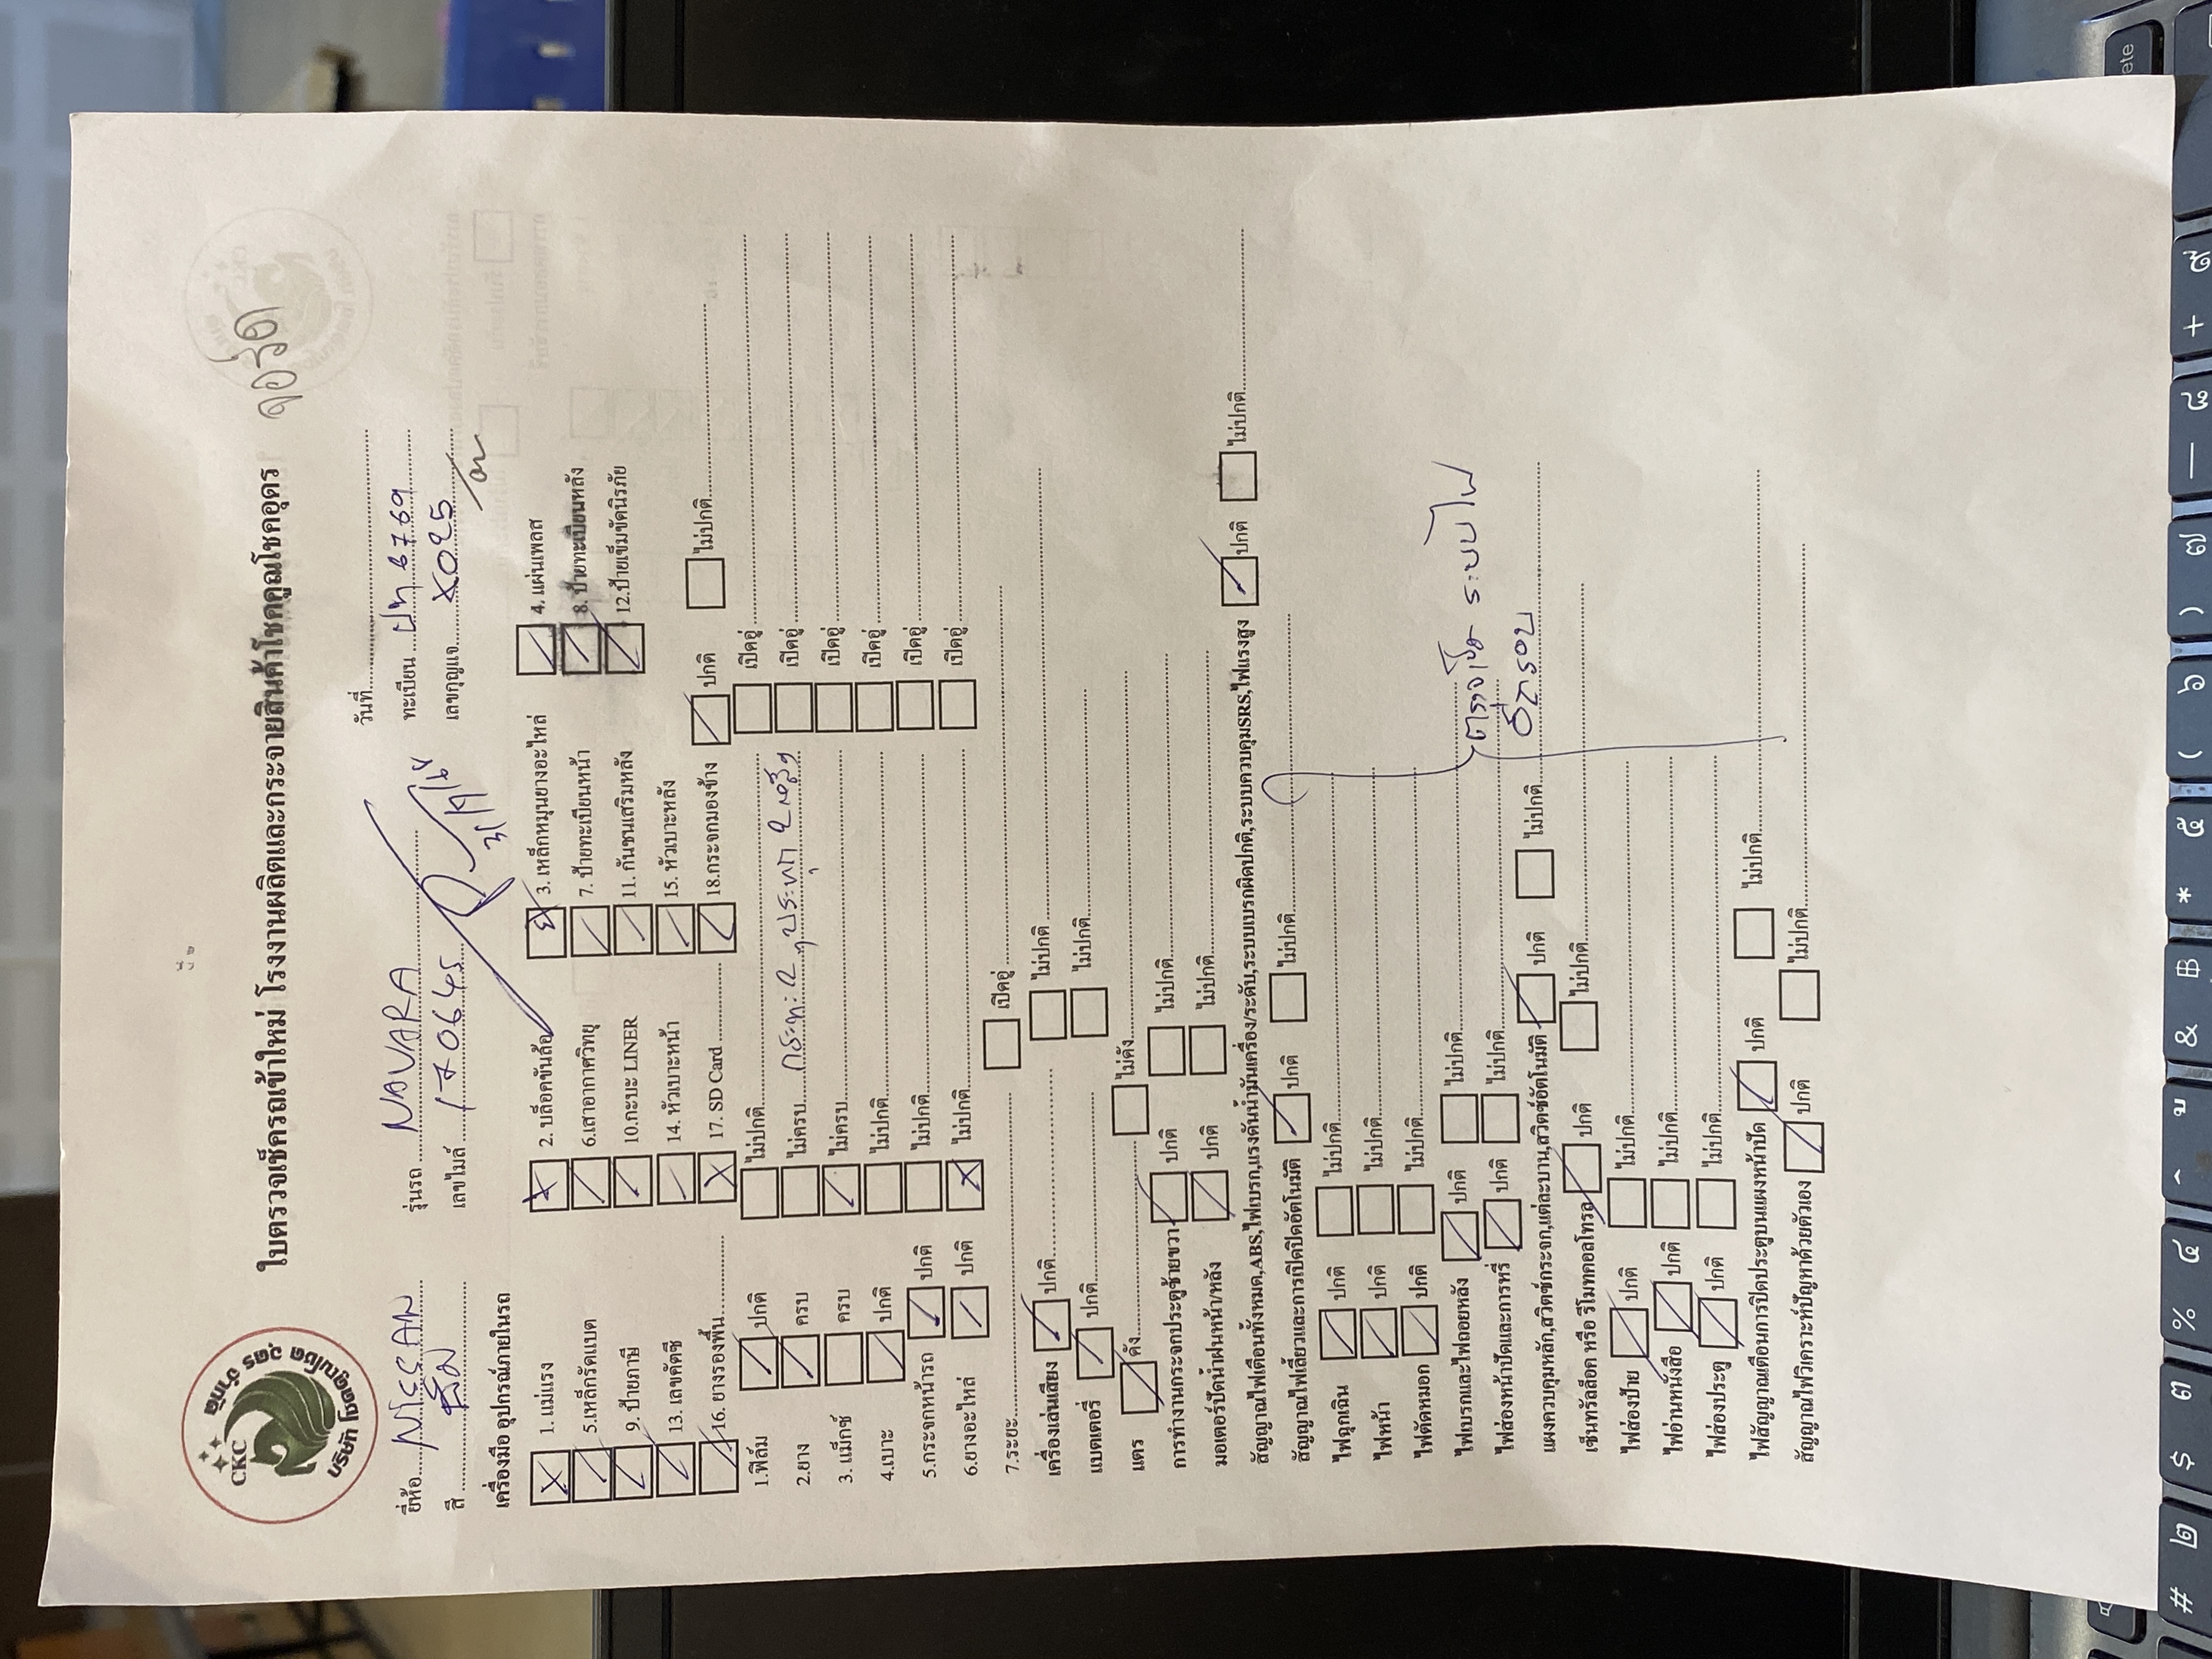 CKC
บริษัท โชคคูณโชค อุดร จำกัด
ใบตรวจเช็ครถเข้าใหม่ โรงงานผลิตและกระจายสินค้าโชคคูณโชคอุดร
จอร์ด
วันที่
ยี่ห้อ NISSAN รุ่นรถ NAVARA ทะเบียน 6769
สี ส้ม เลขไมล์ เลขกุญแจ X025
เครื่องมือ อุปกรณ์ภายในรถ
1. แม่แรง 2. บล็อคขันล้อ 3. เหล็กหมุนยางอะไหล่ 4. แผ่นเพลส
5.เหล็กรัดแบต 6.เสาอากาศวิทยุ 7. ป้ายทะเบียนหน้า 8. ป้ายทะเบียนหลัง
9. ป้ายภาษี 10.กะบะ LINER 11. กันชนเสริมหลัง 12.ป้ายเข็มขัดนิรภัย
13. เลขคัดซี 14. หัวเบาะหน้า 15. หัวเบาะหลัง
16. ยางรองพื้น 17. SD Card 18.กระจกมองข้าง ปกติ ไม่ปกติ
1.ฟิล์ม ปกติ ไม่ปกติ เปิดอู่
2.ยาง ครบ ไม่ครบ เปิดอู่
3. แม็กซ์ ครบ ไม่ครบ เปิดอู่
4.เบาะ ปกติ ไม่ปกติ เปิดอู่
5.กระจกหน้ารถ ปกติ ไม่ปกติ เปิดอู่
6.ยางอะไหล่ ปกติ ไม่ปกติ เปิดอู่
7.ระยะ เปิดอู่
เครื่องเล่นเสียง ปกติ ไม่ปกติ
แบตเตอรี่ ปกติ ไม่ปกติ
แตร ดัง ไม่ดัง
การทำงานกระจกประตูซ้ายขวา ปกติ ไม่ปกติ
มอเตอร์ปัดน้ำฝนหน้า/หลัง ปกติ ไม่ปกติ
สัญญาณไฟเตือนทั้งหมด,ABS,ไฟเบรก,แรงดันน้ำมันเครื่อง/ระดับ,ระบบเบรกผิดปกติ,ระบบควบคุมSRS,ไฟแรงสูง ปกติ ไม่ปกติ
สัญญาณไฟเลี้ยวและการเปิดปิดอัตโนมัติ ปกติ ไม่ปกติ
ไฟฉุกเฉิน ปกติ ไม่ปกติ
ไฟหน้า ปกติ ไม่ปกติ
ไฟตัดหมอก ปกติ ไม่ปกติ
ไฟเบรกและไฟถอยหลัง ปกติ ไม่ปกติ
ตรวจเช็ค ระบบไฟ
ไฟส่องหน้าปัดและการหรี่ ปกติ ไม่ปกติ
อีกรอบ
แผงควบคุมหลัก,สวิตช์กระจก,แต่ละบาน,สวิตช์อัตโนมัติ ปกติ ไม่ปกติ
เซ็นทรัลล็อค หรือ รีโมทคอลโทรล ปกติ ไม่ปกติ
ไฟส่องป้าย ปกติ ไม่ปกติ
ไฟอ่านหนังสือ ปกติ ไม่ปกติ
ไฟส่องประตู ปกติ ไม่ปกติ
ไฟสัญญาณเตือนการปิดประตูบนแผงหน้าปัด ปกติ ไม่ปกติ
สัญญาณไฟวิเคราะห์ปัญหาด้วยตัวเอง ปกติ ไม่ปกติ